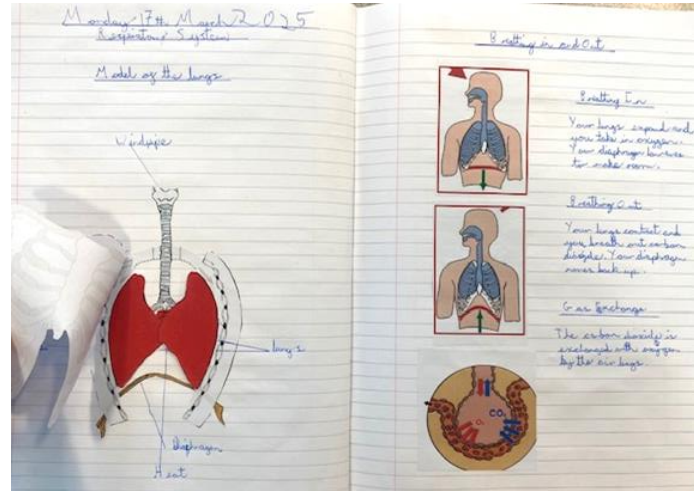 Monday 17th March 2025
Respiratory System
Model of the lungs
Windpipe
lungs
Diaphragm
Heat
Breatting in and Out
Breatting In
Your lungs expand and
you take in oxygen.
Your diaphragm
to make room.
Breathing Out
Your lungs contact and
you breath out carbon
dioxide. Your diaphragm
moves back up.
Gas Exchange
The carbon dioxide is
exchanged with oxygen
by the air bags.
CO₂
O₂